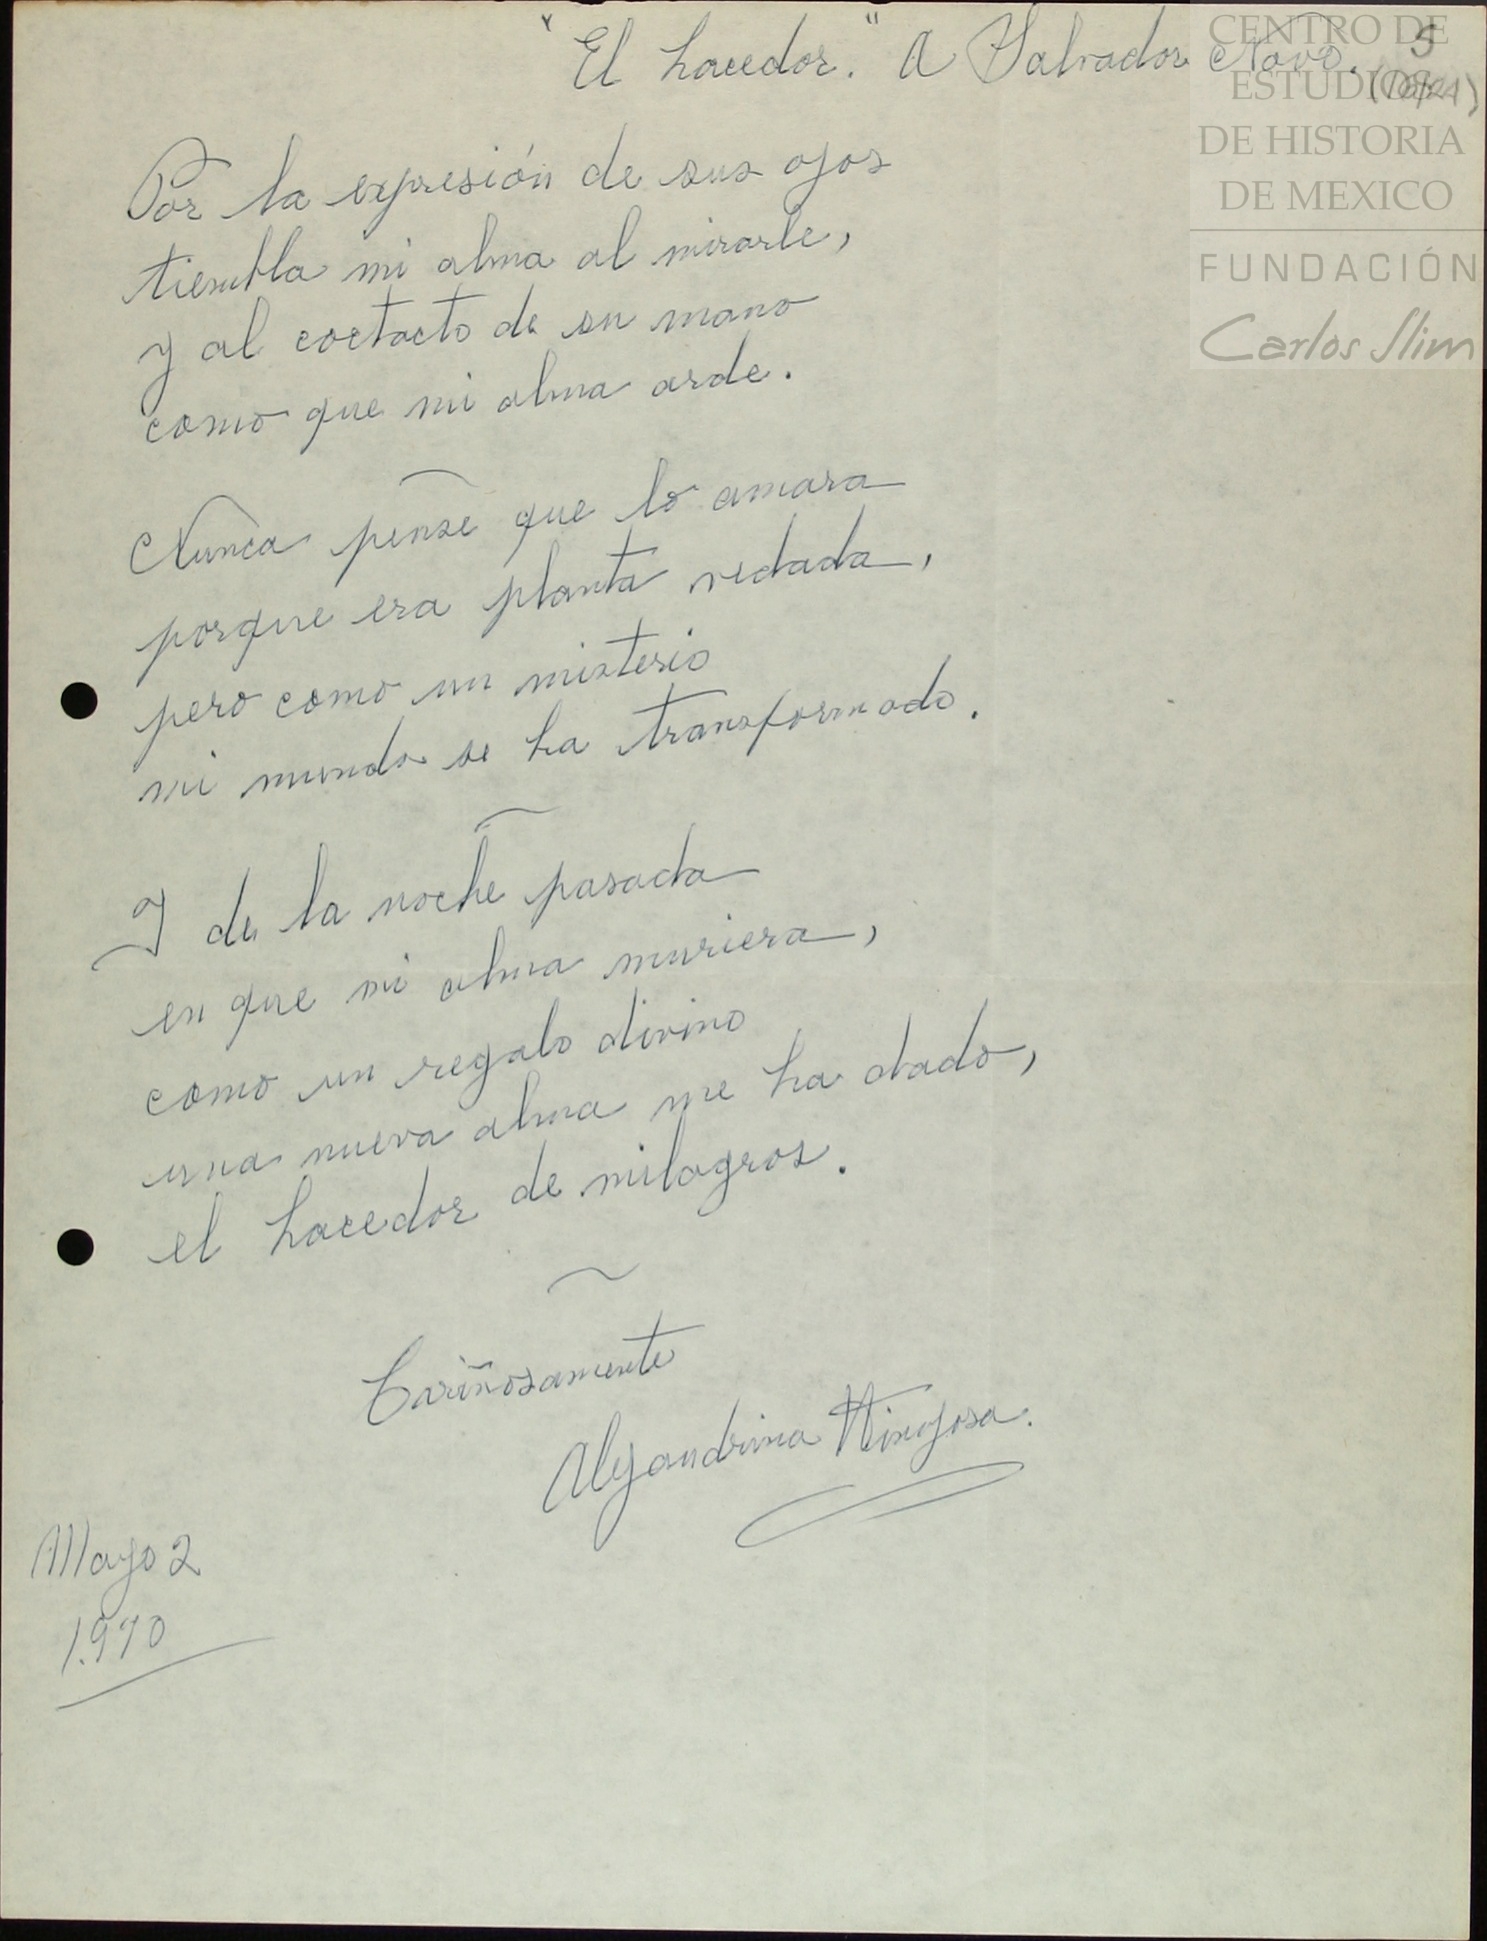 "El hacedor." A Salvador Novo. 5
CENTRO DE
ESTUDIOS
DE HISTORIA
DE MEXICO
FUNDACIÓN
Carlos Slim
Por la expresión de sus ojos
tiembla mi alma al mirarle,
y al coctacto de su mano
como que mi alma arde.
Nunca pensé que lo amara
porque era planta vedada,
pero como un misterio
mi mundo se ha transformado.
Y de la noche pasada
en que mi alma muriera,
como un regalo divino
una nueva alma me ha dado,
el hacedor de milagros.
Cariñosamente
Alejandrina Hinojosa.
Mayo 2
1.970